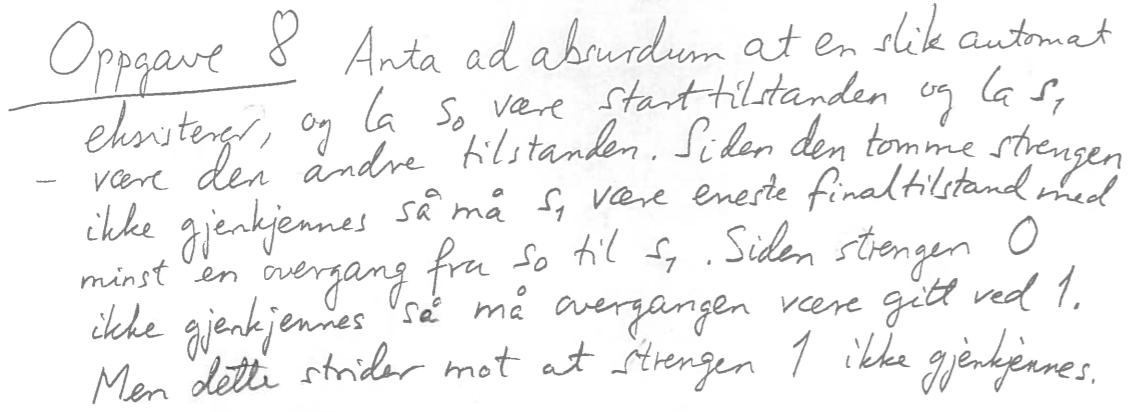 Oppgave 8 Anta ad absurdum at en slik automat
eksisterer, og la s₀ være starttilstanden og la s₁
- være den andre tilstanden. Siden den tomme strengen
ikke gjenkjennes så må s₁ være eneste finaltilstand med
minst en overgang fra s₀ til s₁. Siden strengen 0
ikke gjenkjennes så må overgangen være gitt ved 1.
Men dette strider mot at strengen 1 ikke gjenkjennes.